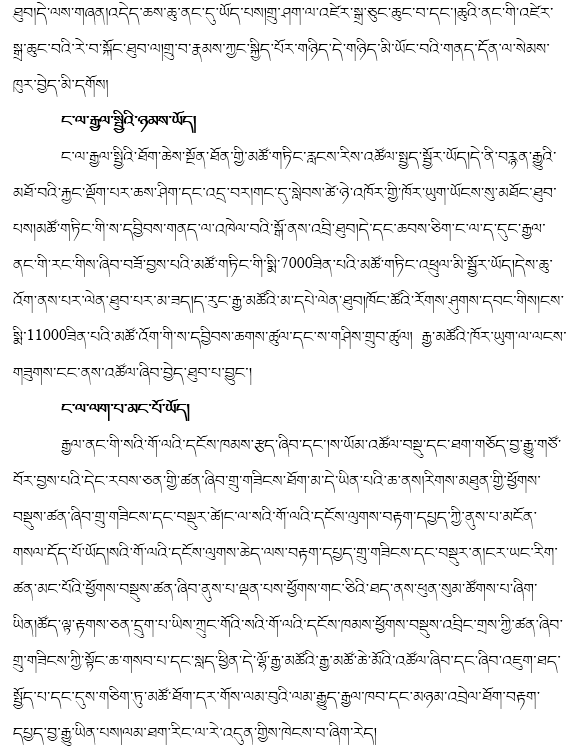 ཐུབ།དེ་ལས་གཞན།འདེད་ཆས་ཆུ་ནང་དུ་ཡོད་པས།གྲུ་ཤག་ལ་འཛེར་སྒྲ་ཅུང་ཆུང་བ་དང་།ཆུའི་ནང་གི་འཛེར་
སྒྲ་ཆུང་བའི་རེ་བ་སྐོང་ཐུབ་ལ།གྲུ་བ་རྣམས་ཀྱང་སྐྱིད་པོར་གཉིད་དེ་གཉིད་མི་ཡོང་བའི་གནད་དོན་ལ་སེམས་
ཁུར་བྱེད་མི་དགོས།
ང་ལ་རྒྱལ་སྤྱིའི་ཉམས་ཡོད།
ང་ལ་རྒྱལ་སྤྱིའི་ཐོག་ཆེས་སྔོན་ཐོན་གྱི་མཚོ་གཏིང་རླངས་རིས་འཚོལ་སྤྱད་སྦྱོར་ཡོད།དེ་ནི་བརྙན་རྒྱུའི་
མཐོ་བའི་རྐྱང་ལྡོག་པར་ཆས་ཤིག་དང་འདྲ་བར།གང་དུ་སླེབས་ཚེ་ཉེ་འཁོར་གྱི་ཁོར་ཡུག་ཡོངས་སུ་མཐོང་ཐུབ་
པས།མཚོ་གཏིང་གི་ས་དབྱིབས་གནད་ལ་འཁེལ་བའི་སྒོ་ནས་འབྲི་ཐུབ།དེ་དང་ཆབས་ཅིག་ང་ལ་ད་དུང་རྒྱལ་
ནང་གི་རང་གིས་ཞིབ་བཟོ་བྱས་པའི་མཚོ་གཏིང་གི་སྨི་7000ཟིན་པའི་མཚོ་གཏིང་འཕྲུལ་མི་སྦྱོར་ཡོད།དེས་ཆུ་
འོག་ནས་པར་ལེན་ཐུབ་པར་མ་ཟད།ད་དུང་རྒྱ་མཚོའི་མ་དཔེ་ལེན་ཐུབ།ཁོང་ཚོའི་རོགས་ཤུགས་དབང་གིས།ངས་
སྨི་11000ཟིན་པའི་མཚོ་འོག་གི་ས་དབྱིབས་ཆགས་ཚུལ་དང་ས་གཤིས་གྲུབ་ཚུལ། རྒྱ་མཚོའི་ཁོར་ཡུག་ལ་ལངས་
གཟུགས་ངང་ནས་འཚོལ་ཞིབ་བྱེད་ཐུབ་པ་བྱུང་།
ང་ལ་ལག་པ་མང་པོ་ཡོད།
རྒྱལ་ནང་གི་སའི་གོ་ལའི་དངོས་ཁམས་རྩད་ཞིབ་དང་།ས་ཡོམ་འཚོལ་བསྡུ་དང་ཐག་གཅོད་བྱ་རྒྱུ་གཙོ་
བོར་བྱས་པའི་དེང་རབས་ཅན་གྱི་ཚན་ཞིབ་གྲུ་གཟིངས་ཐོག་མ་དེ་ཡིན་པའི་ཆ་ནས།རིགས་མཐུན་གྱི་ཕྱོགས་
བསྡུས་ཚན་ཞིབ་གྲུ་གཟིངས་དང་བསྡུར་ཚེ།ང་ལ་སའི་གོ་ལའི་དངོས་ལུགས་བརྟག་དཔྱད་ཀྱི་ནུས་པ་མངོན་
གསལ་དོད་པོ་ཡོད།སའི་གོ་ལའི་དངོས་ལུགས་ཆེད་ལས་བརྟག་དཔྱད་གྲུ་གཟིངས་དང་བསྡུར་ན།ངར་ཡང་རིག་
ཚན་མང་པོའི་ཕྱོགས་བསྡུས་ཚན་ཞིབ་ནུས་པ་ལྡན་པས་ཕྱོགས་གང་ཅིའི་ཐད་ནས་ཕུན་སུམ་ཚོགས་པ་ཞིག་
ཡིན།ཚོད་ལྟ་རྟགས་ཅན་དྲུག་པ་ཡིས་ཀྲུང་གོའི་སའི་གོ་ལའི་དངོས་ཁམས་ཕྱོགས་བསྡུས་འབྲིང་གྲས་ཀྱི་ཚན་ཞིབ་
གྲུ་གཟིངས་ཀྱི་སྟོང་ཆ་གསབ་པ་དང་སླད་ཕྱིན་དེ་ལྷོ་རྒྱ་མཚོའི་རྒྱ་མཚོ་ཆེ་མོའི་འཚོལ་ཞིབ་དང་ཞིབ་འཇུག་ཐད་
སྤྱོད་པ་དང་དུས་གཅིག་ཏུ་མཚོ་ཐོག་དར་གོས་ལམ་བུའི་ལམ་རྒྱུད་རྒྱལ་ཁབ་དང་མཉམ་འབྲེལ་ཐོག་བརྟག་
དཔྱད་བྱ་རྒྱུ་ཡིན་པས།ལམ་ཐག་རིང་ལ་རེ་འདུན་གྱིས་ཁེངས་བ་ཞིག་རེད།